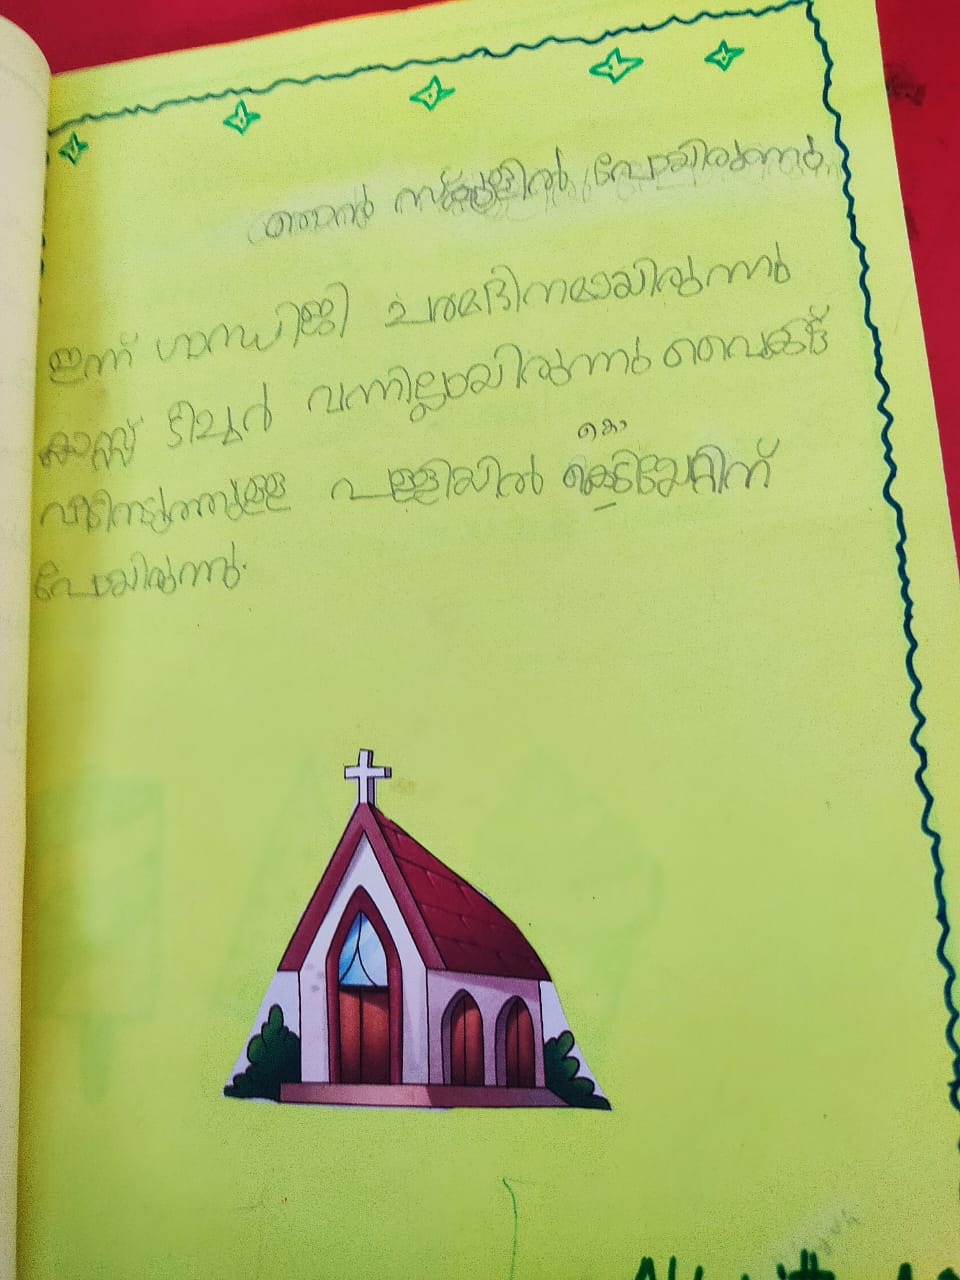 ഞാൻ സ്കൂളിൽ പോയിരുന്നു
ഇന്ന് ഗാന്ധിജി ചരമദിനമായിരുന്നു
ക്ലാസ്സ് ടീച്ചർ വന്നില്ലായിരുന്നു വൈകിട്ട്
വീടിനടുത്തുള്ള പള്ളിയിൽ കൊടിയേറ്റിന്
പോയിരുന്നു.